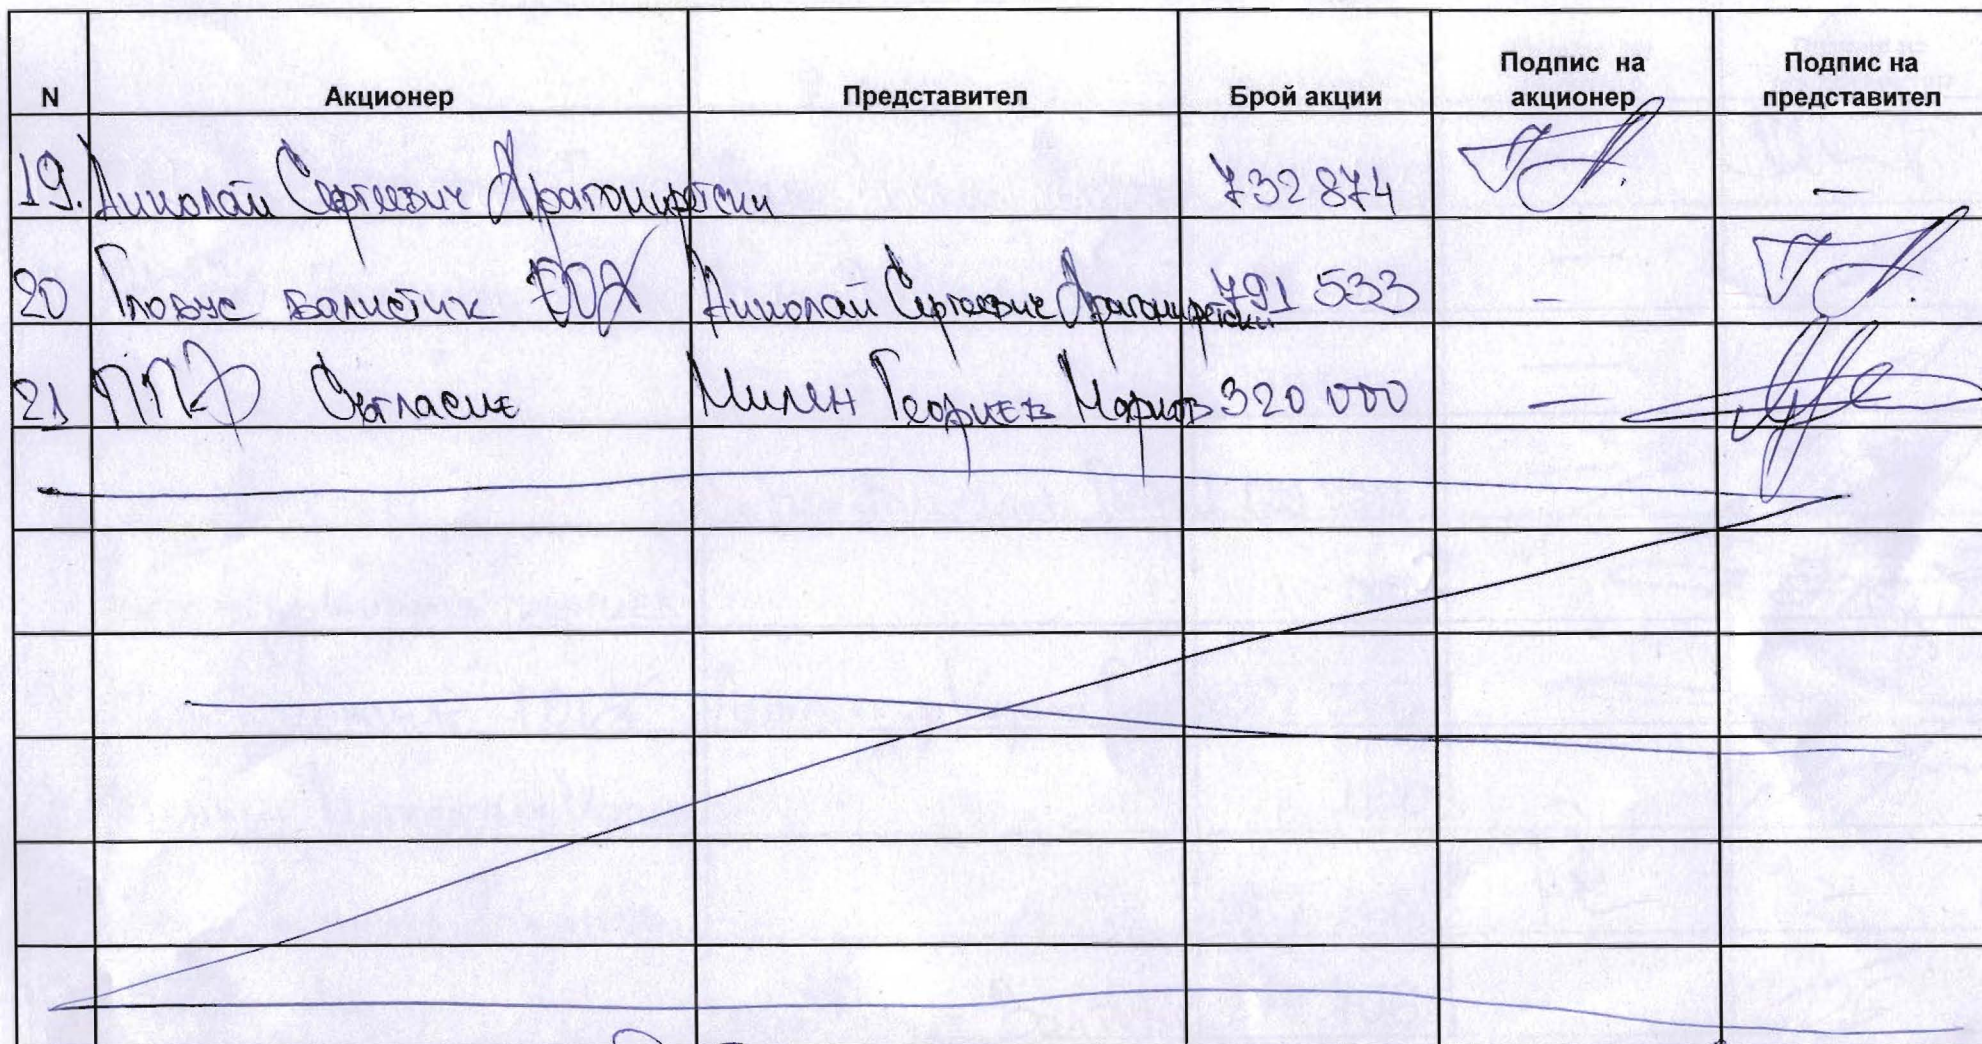 N Акционер Представител Брой акции Подпис на акционер Подпис на представител
19. Николай Сергеевич 732 874 —
20 Глобус Балистик Николай Сергеевич 791 533 —
21 ППФ Съгласие Милен Георгиев Марков 320 000 —